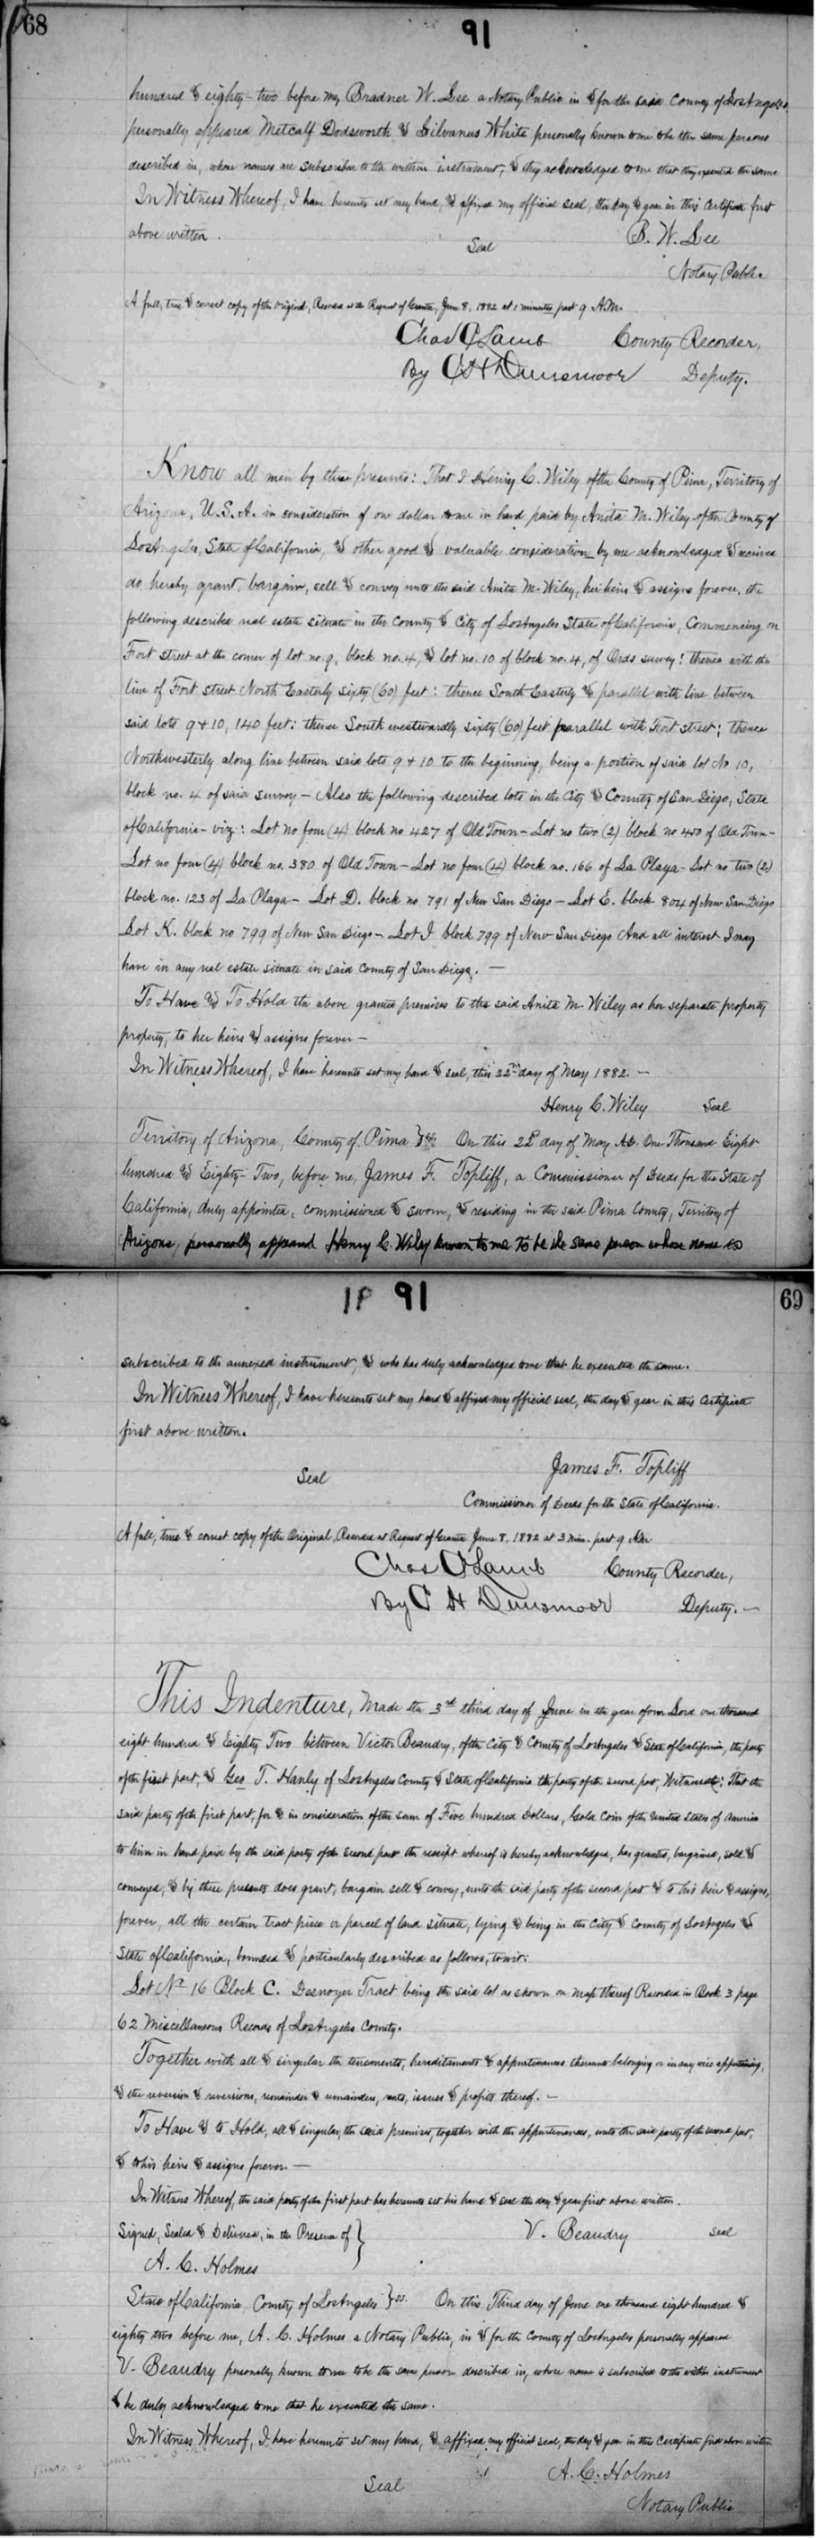 68
91
hundred & eighty-two before me, Bradner W. Lee a Notary Public in & for the said County of Los Angeles,
personally appeared Metcalf Dodsworth & Silvanus White personally known to me to be the same persons
described in, whose names are subscribed to the within instrument, & they acknowledged to me that they executed the same
In Witness Whereof, I have hereunto set my hand, & affixed my official seal, the day & year in this Certificate first
above written.
Seal
B. W. Lee
Notary Public
A full, true & correct copy of the Original, Recorded at Request of Grantee, June 8, 1882 at 1 minutes past 9 A.M.
Chas C Lamb County Recorder,
By C H Dunsmoor Deputy.
Know all men by these presents: That I Henry C. Wiley of the County of Pima, Territory of
Arizona, U.S.A. in consideration of one dollar to me in hand paid by Anita M. Wiley of the County of
Los Angeles, State of California, & other good & valuable consideration by me acknowledged & received
do hereby grant, bargain, sell & convey unto the said Anita M. Wiley, her heirs & assigns forever, the
following described real estate situate in the County & City of Los Angeles State of California, Commencing on
Fort street at the corner of lot no. 9, block no. 4, & lot no. 10 of block no. 4, of Ords survey: thence with the
line of Fort street North Easterly sixty (60) feet: thence South Easterly & parallel with line between
said lots 9 & 10, 140 feet: thence South westwardly sixty (60) feet parallel with Fort street; thence
Northwesterly along line between said lots 9 & 10 to the beginning, being a portion of said lot No 10,
block no. 4 of said survey – Also the following described lots in the City & County of San Diego, State
of California – viz: Lot no four (4) block no 427 of Old Town – Lot no two (2) block no 450 of Old Town –
Lot no four (4) block no. 380 of Old Town – Lot no four (4) block no. 166 of La Playa – Lot no two (2)
block no. 123 of La Playa – Lot D. block no 791 of New San Diego – Lot E. block 804 of New San Diego
Lot K. block no 799 of New San Diego – Lot I block 799 of New San Diego And all interest I may
have in any real estate situate in said County of San Diego. –
To Have & To Hold the above granted premises to the said Anita M. Wiley as her separate property
property, to her heirs & assigns forever –
In Witness Whereof, I have hereunto set my hand & seal, this 22nd day of May 1882. –
Henry C. Wiley Seal
Territory of Arizona, County of Pima } ss. On this 22d day of May A.D. One Thousand Eight
hundred & Eighty-Two, before me, James F. Topliff, a Commissioner of Deeds for the State of
California, duly appointed, commissioned & sworn, & residing in the said Pima County, Territory of
Arizona, personally appeared Henry C. Wiley known to me to be the same person whose name is
91
69
subscribed to the annexed instrument, & who has duly acknowledged to me that he executed the same.
In Witness Whereof, I have hereunto set my hand & affixed my official seal, the day & year in this Certificate
first above written.
James F. Topliff
Seal
Commissioner of Deeds for the State of California.
A full, true & correct copy of the Original, Recorded at Request of Grantee June 8, 1882 at 3 min. past 9 AM
Chas C Lamb County Recorder,
By C H Dunsmoor Deputy. –
This Indenture, Made the 3rd third day of June in the year of our Lord one thousand
eight hundred & Eighty Two between Victor Beaudry, of the City & County of Los Angeles & State of California, the party
of the first part, & Geo T. Hanly of Los Angeles County & State of California the party of the second part, Witnesseth: That the
said party of the first part, for & in consideration of the sum of Five hundred Dollars, Gold Coin of the United States of America
to him in hand paid by the said party of the second part the receipt whereof is hereby acknowledged, has granted, bargained, sold &
conveyed, & by these presents does grant, bargain sell & convey, unto the said party of the second part & to his heirs & assigns,
forever, all the certain tract piece or parcel of land situate, lying & being in the City & County of Los Angeles &
State of California, bounded & particularly described as follows, to wit:
Lot No 16 Block C. Desnoyer Tract being the said lot as shown on map thereof Recorded in Book 3 page
62 Miscellaneous Records of Los Angeles County.
Together with all & singular the tenements, hereditaments & appurtenances thereunto belonging or in any wise appertaining,
& the reversion & reversions, remainder & remainders, rents, issues & profits thereof. –
To Have & to Hold, all & singular, the said premises, together with the appurtenances, unto the said party of the second part,
& to his heirs & assigns forever –
In Witness Whereof, the said party of the first part has hereunto set his hand & seal the day & year first above written.
Signed, Sealed & Delivered, in the Presence of } V. Beaudry seal
A. C. Holmes
State of California County of Los Angeles } ss. On this Third day of June one thousand eight hundred &
eighty two before me, A. C. Holmes a Notary Public, in & for the County of Los Angeles personally appeared
V. Beaudry personally known to me to be the same person described in, whose name is subscribed to the within instrument
& he duly acknowledged to me that he executed the same.
In Witness Whereof, I have hereunto set my hand, & affixed my official seal, the day & year in this Certificate first above written
A. C. Holmes
Seal
Notary Public